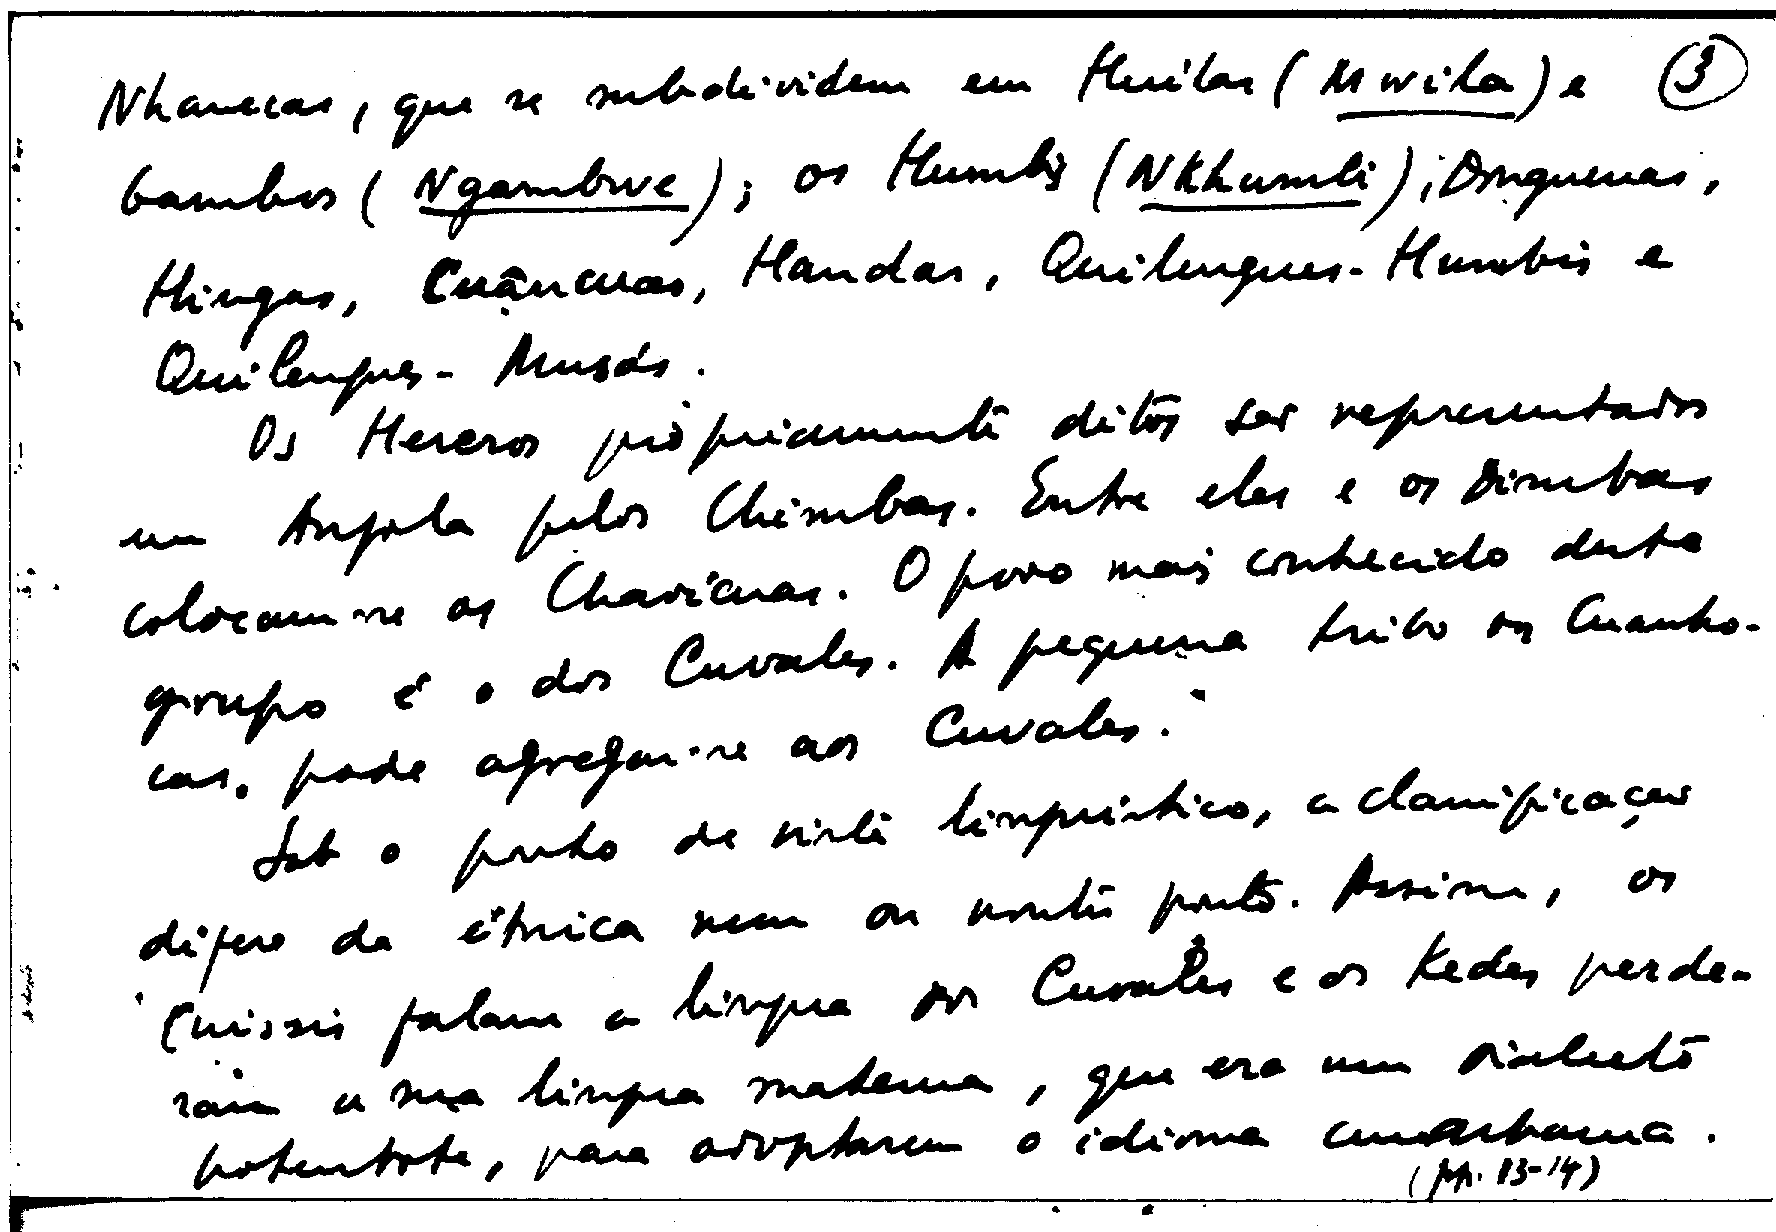 Nhanecas, que se subdividem em Huílas (Mwila) e ③
Gambos (Ngambwe); os Humbis (Nkhumbi); Donguenas,
Hingas, Cuâncuas, Handas, Quilengues-Humbis e
Quilengues-Musós.
Os Hereros pròpriamente ditos são representados
em Angola pelos Chimbas. Entre eles e os Dimbas
colocam-se os Chavícuas. O povo mais conhecido deste
grupo é o dos Cuvales. A pequena tribo os Cuanho-
cas, pode agregar-se aos Cuvales."
Sob o ponto de vista linguístico, a classificação
difere da étnica num ou noutro ponto. Assim, os
Cuissis falam a língua dos Cuvales e os Kedes perde-
ram a sua língua materna, que era um dialecto
hotentote, para adoptarem o idioma
(pp. 13-14)